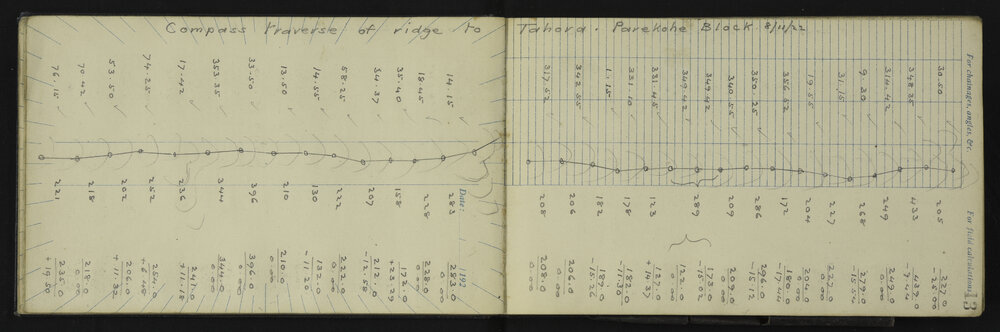 Compass traverse of ridge to Tahora. Parekohe Block 8/11/22
For chainages, angles, &c.
For field calculations
13
Date: 192
76.15
70.42
53.50
74.25
17.42
353.35
33.50
13.50
14.55
58.25
34.37
35.40
18.45
14.15
317.52
342.55
1.15
331.10
331.45
349.42
349.42
340.55
350.25
356.52
19.55
31.15
9.30
314.42
348.25
30.50
221
218
202
252
236
344
396
210
130
222
207
158
228
283
208
206
182
178
123
289
209
286
172
204
227
268
249
433
205
235.0
+19.50
218.0
0.00
206.0
+11.32
254.0
+6.48
247.0
+11.18
344.0
0.00
396.0
0.00
210.0
0.00
132.0
-11.20
222.0
0.00
212.0
-12.58
172.0
+23.29
228.0
0.00
283.0
0.00
208.0
0.00
206.0
0.00
187.0
-15.26
182.0
-11.30
127.0
+14.37
122.0
0.00
173.0
-15.02
209.0
0.00
296.0
-15.12
180.0
-17.44
204.0
0.00
227.0
0.00
279.0
-15.54
249.0
0.00
439.0
-9.44
227.0
-25.00